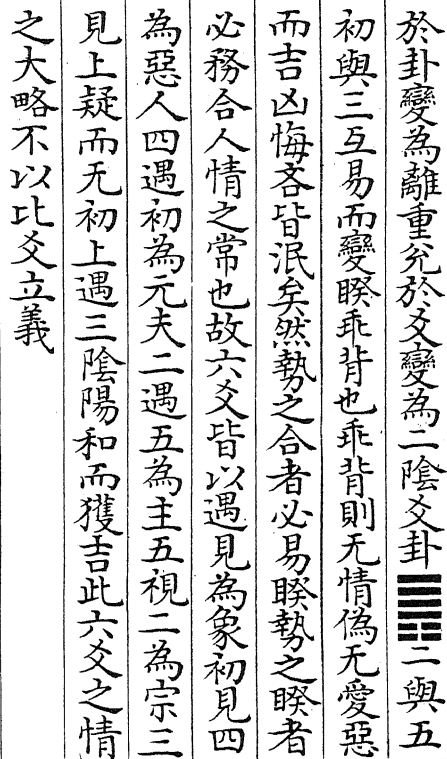 於卦變為離重兊於爻變為二陰爻卦䷠二與五
初與三互易而變睽乖背也乖背則无情偽无愛惡
而吉凶悔吝皆泯矣然勢之合者必易睽勢之睽者
必務合人情之常也故六爻皆以遇見為象初見四
為惡人四遇初為元夫二遇五為主五視二為宗三
見上疑而无初上遇三陰陽和而獲吉此六爻之情
之大略不以比爻立義